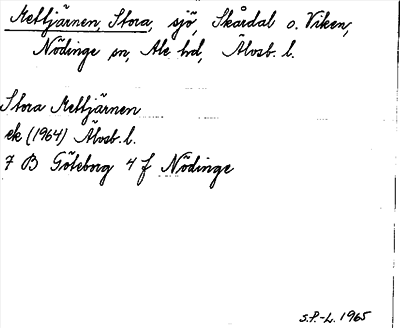 Mettjärnen, Stora, sjö, Skårdal o. Viken,
Nödinge sn, Ale hd, Älvsb. l.
Stora Mettjärnen
ek (1964) Älvsb. l.
7 B Göteborg 4 f Nödinge
S.P.-L. 1965